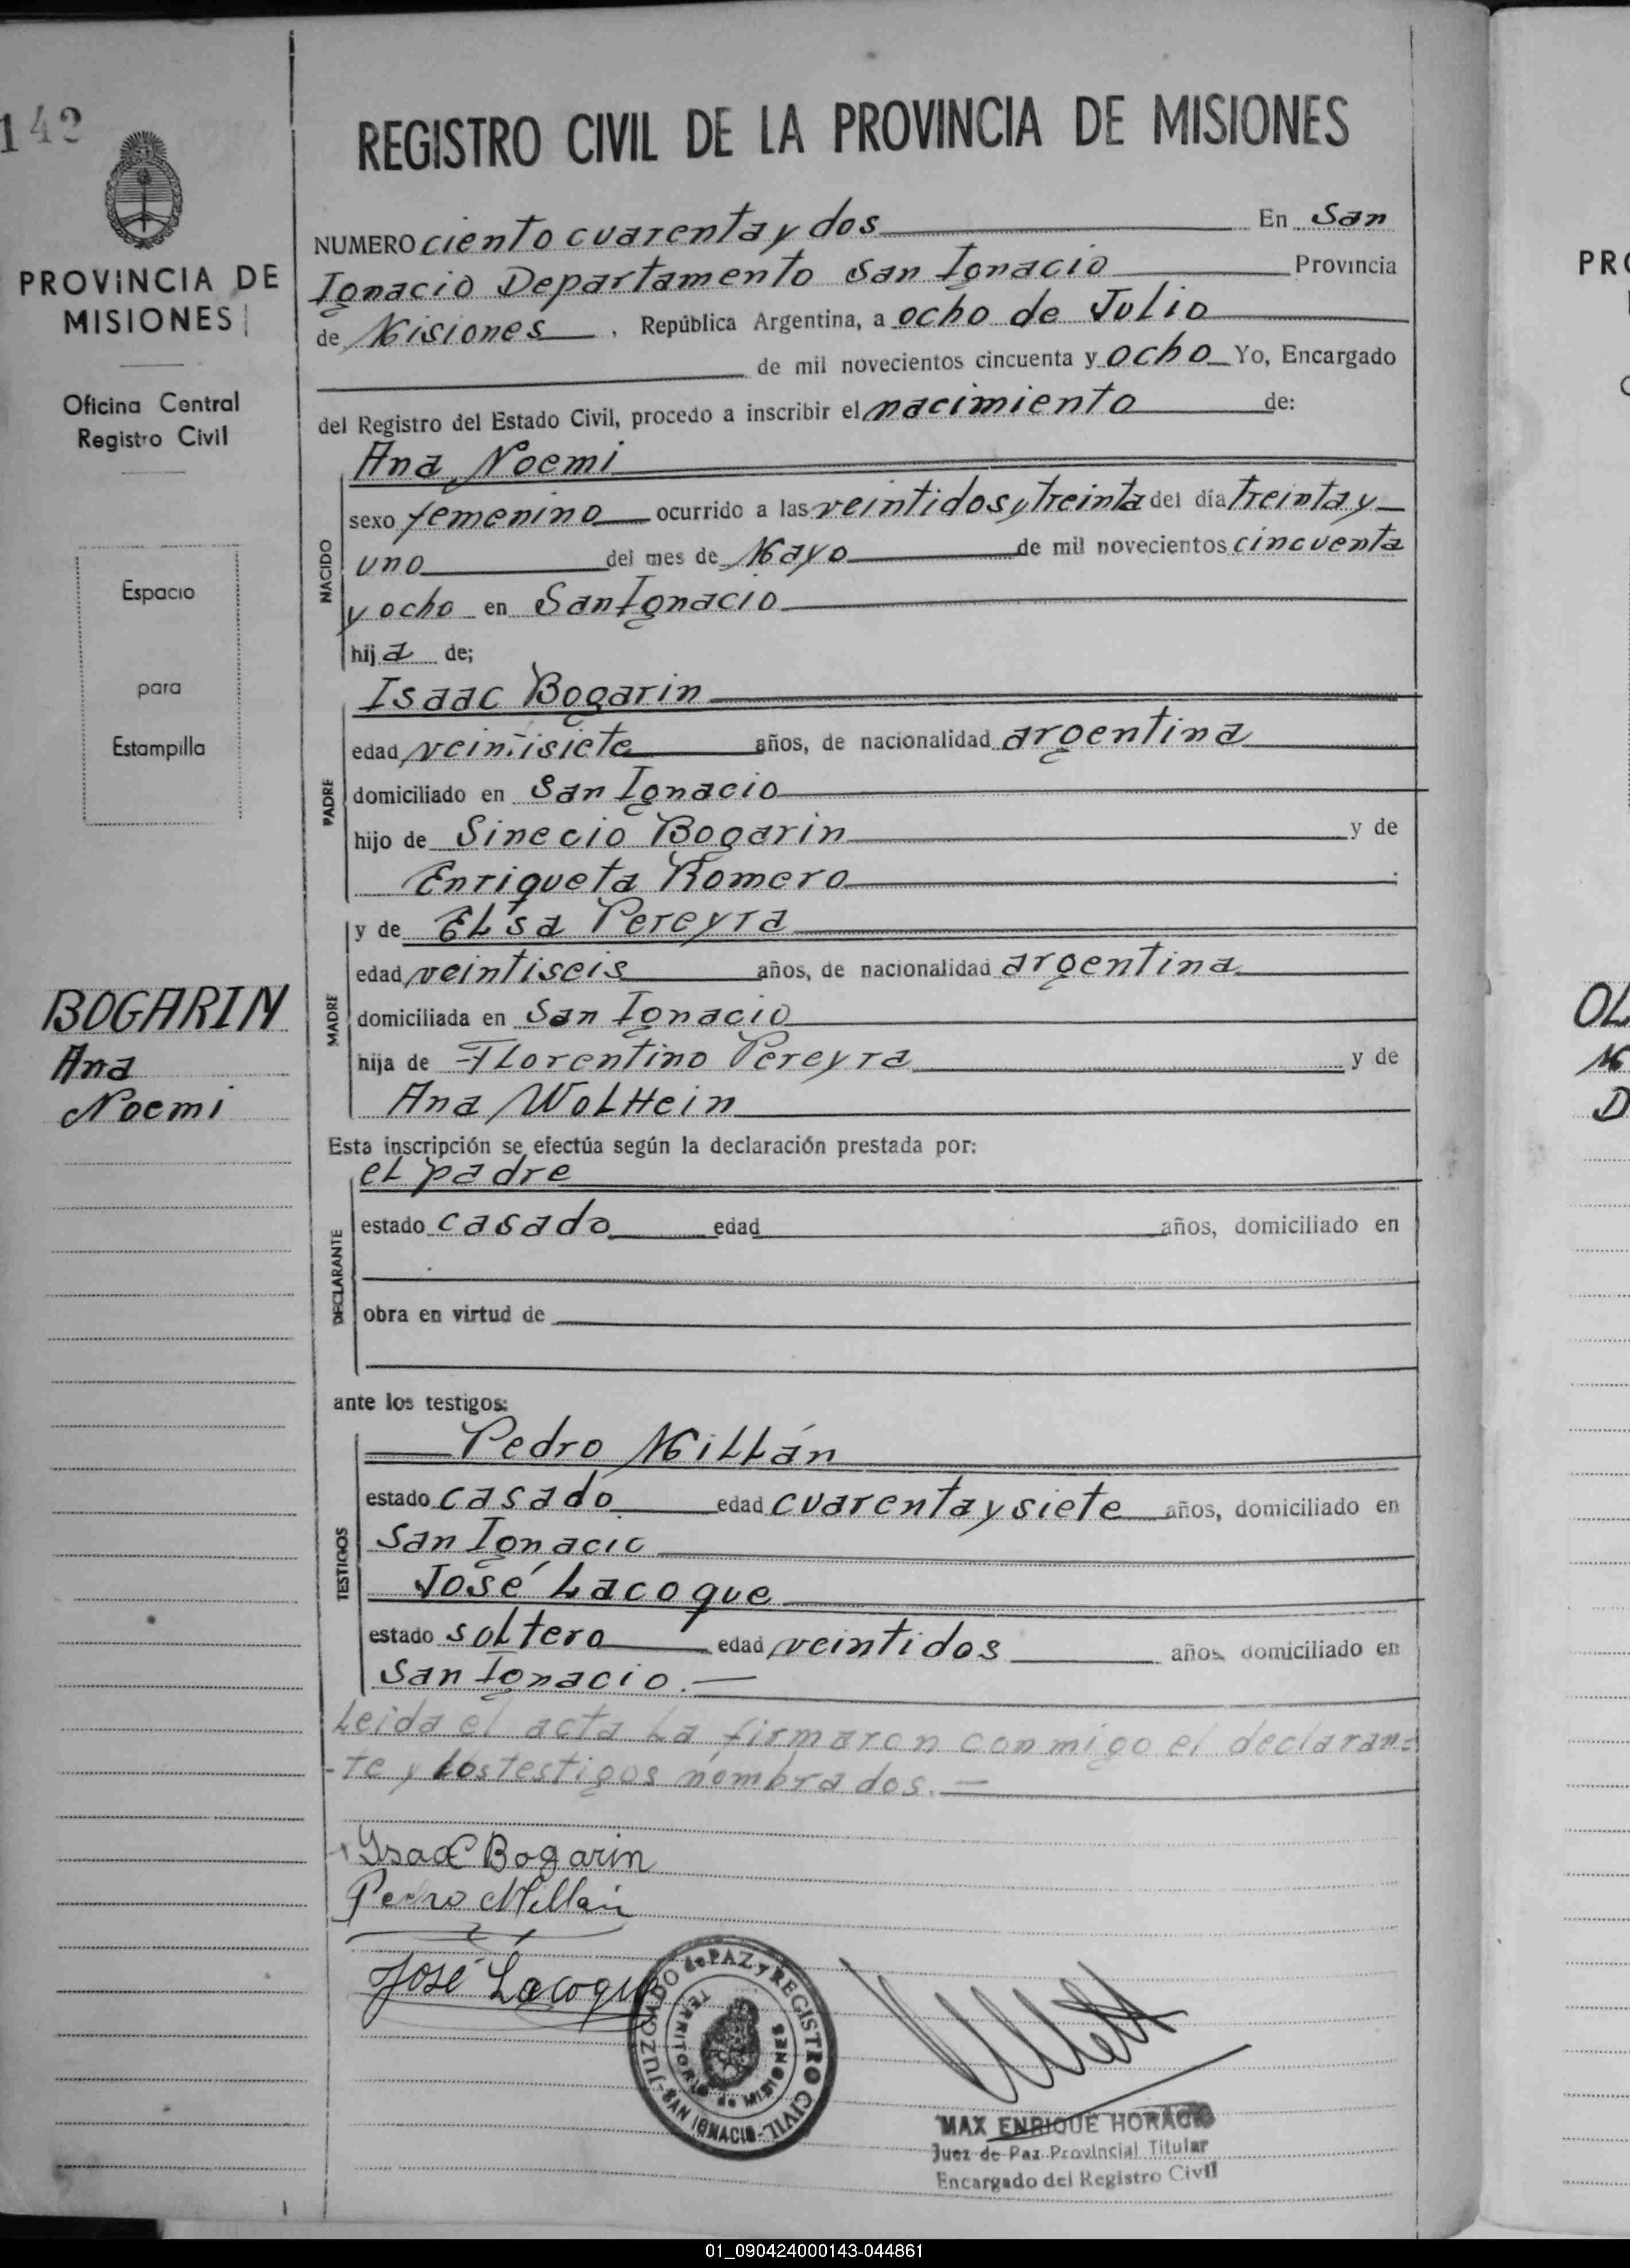 142
PROVINCIA DE
MISIONES
Oficina Central
Registro Civil
Espacio
para
Estampilla
BOGARIN
Ana
Noemi
REGISTRO CIVIL DE LA PROVINCIA DE MISIONES
NUMERO ciento cuarenta y dos En San
Ignacio Departamento San Ignacio Provincia
de Misiones, República Argentina, a ocho de Julio
de mil novecientos cincuenta y ocho Yo, Encargado
del Registro del Estado Civil, procedo a inscribir el nacimiento de:
NACIDO
Ana Noemi
sexo femenino ocurrido a las veintidos y treinta del día treinta y
uno del mes de Mayo de mil novecientos cincuenta
y ocho en San Ignacio
hija de;
PADRE
Isaac Bogarin
edad veintisiete años, de nacionalidad argentina
domiciliado en San Ignacio
hijo de Sinecio Bogarin y de
Enriqueta Romero
MADRE
y de Elsa Pereyra
edad veintiseis años, de nacionalidad argentina
domiciliada en San Ignacio
hija de Florentino Pereyra y de
Ana Wolhein
Esta inscripción se efectúa según la declaración prestada por:
DECLARANTE
el padre
estado casado edad años, domiciliado en
obra en virtud de
ante los testigos:
TESTIGOS
Pedro Millán
estado casado edad cuarenta y siete años, domiciliado en
San Ignacio
José Lacoque
estado soltero edad veintidos años, domiciliado en
San Ignacio.-
Leida el acta la firmaron conmigo el declaran=
-te y los testigos nombrados.-
Ysaac Bogarin
Pedro Millan
José Lacoque
JUZGADO de PAZ y REGISTRO CIVIL - SAN IGNACIO -
TERRITORIO de MISIONES
MAX ENRIQUE HORACIO
Juez de Paz Provincial Titular
Encargado del Registro Civil
PRO
OL
M
D
01_090424000143-044861